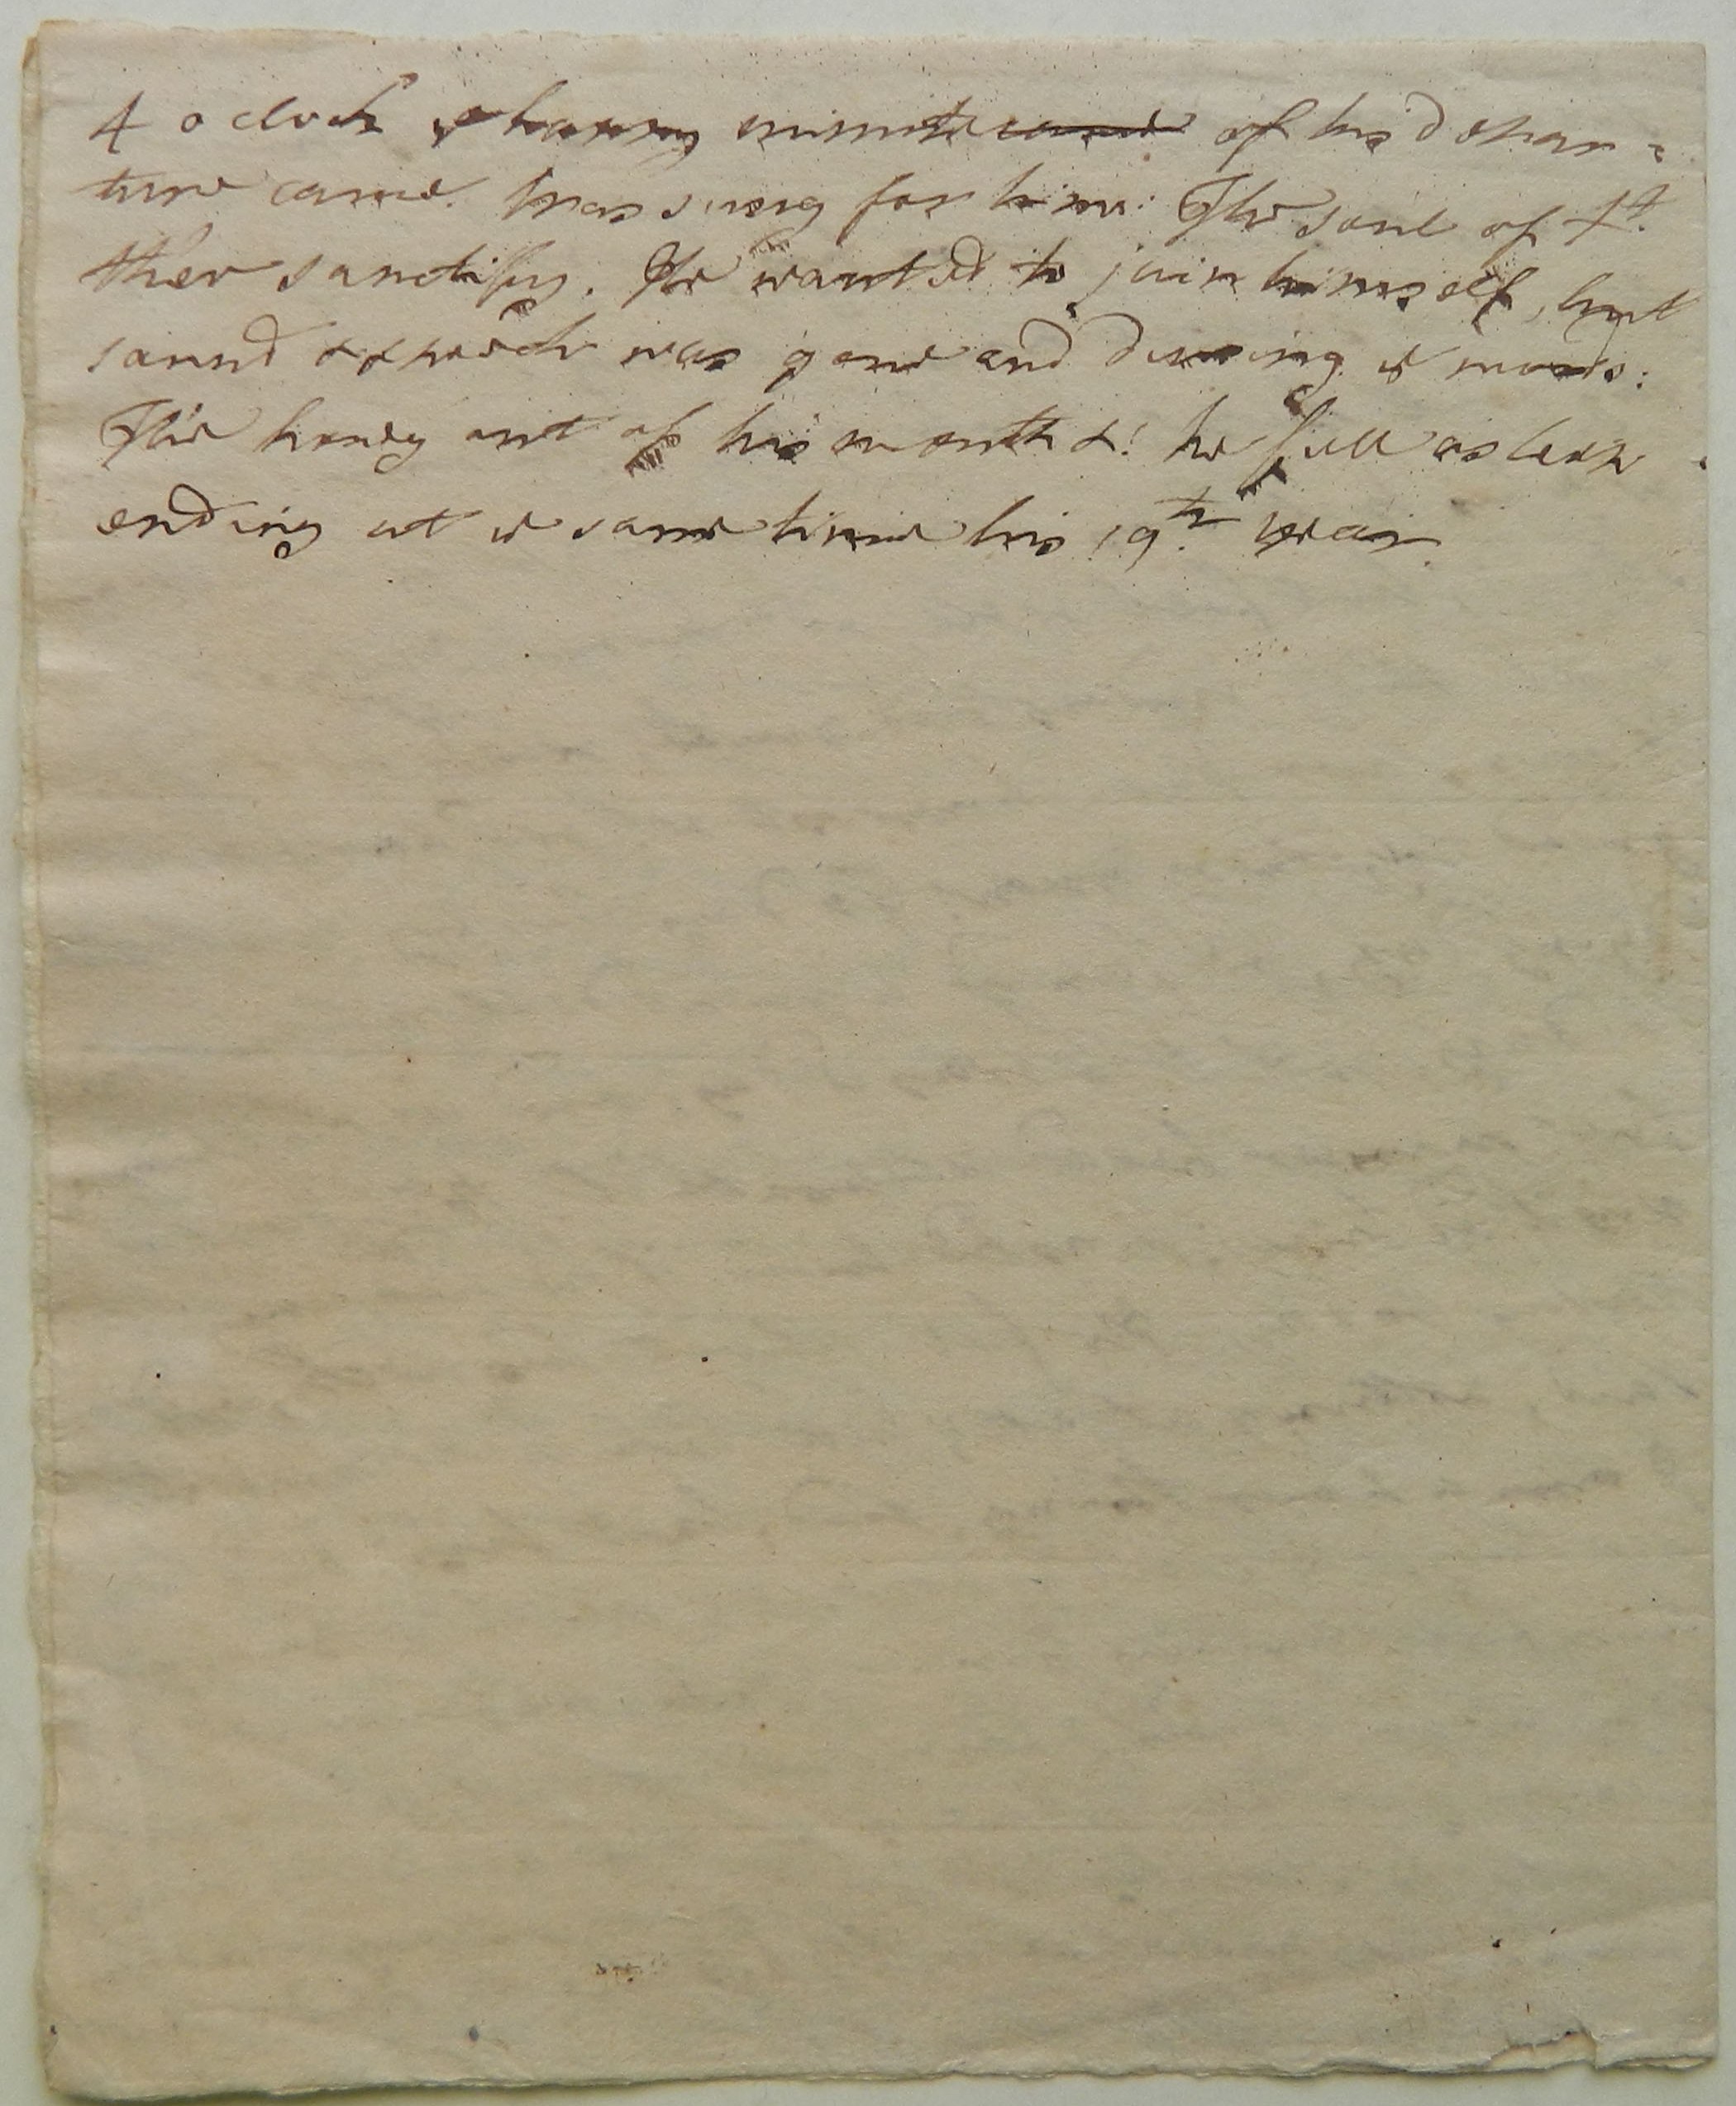 4 o clock ye happy minute came of his depar=
ture came. Was sung for him: The soul of Xt.
thee sanctify. He wanted to join himself, but
sound & speech was gone and during ye words:
The honey out of his mouth &! he fell asleep
ending at ye same time his 19th. year.